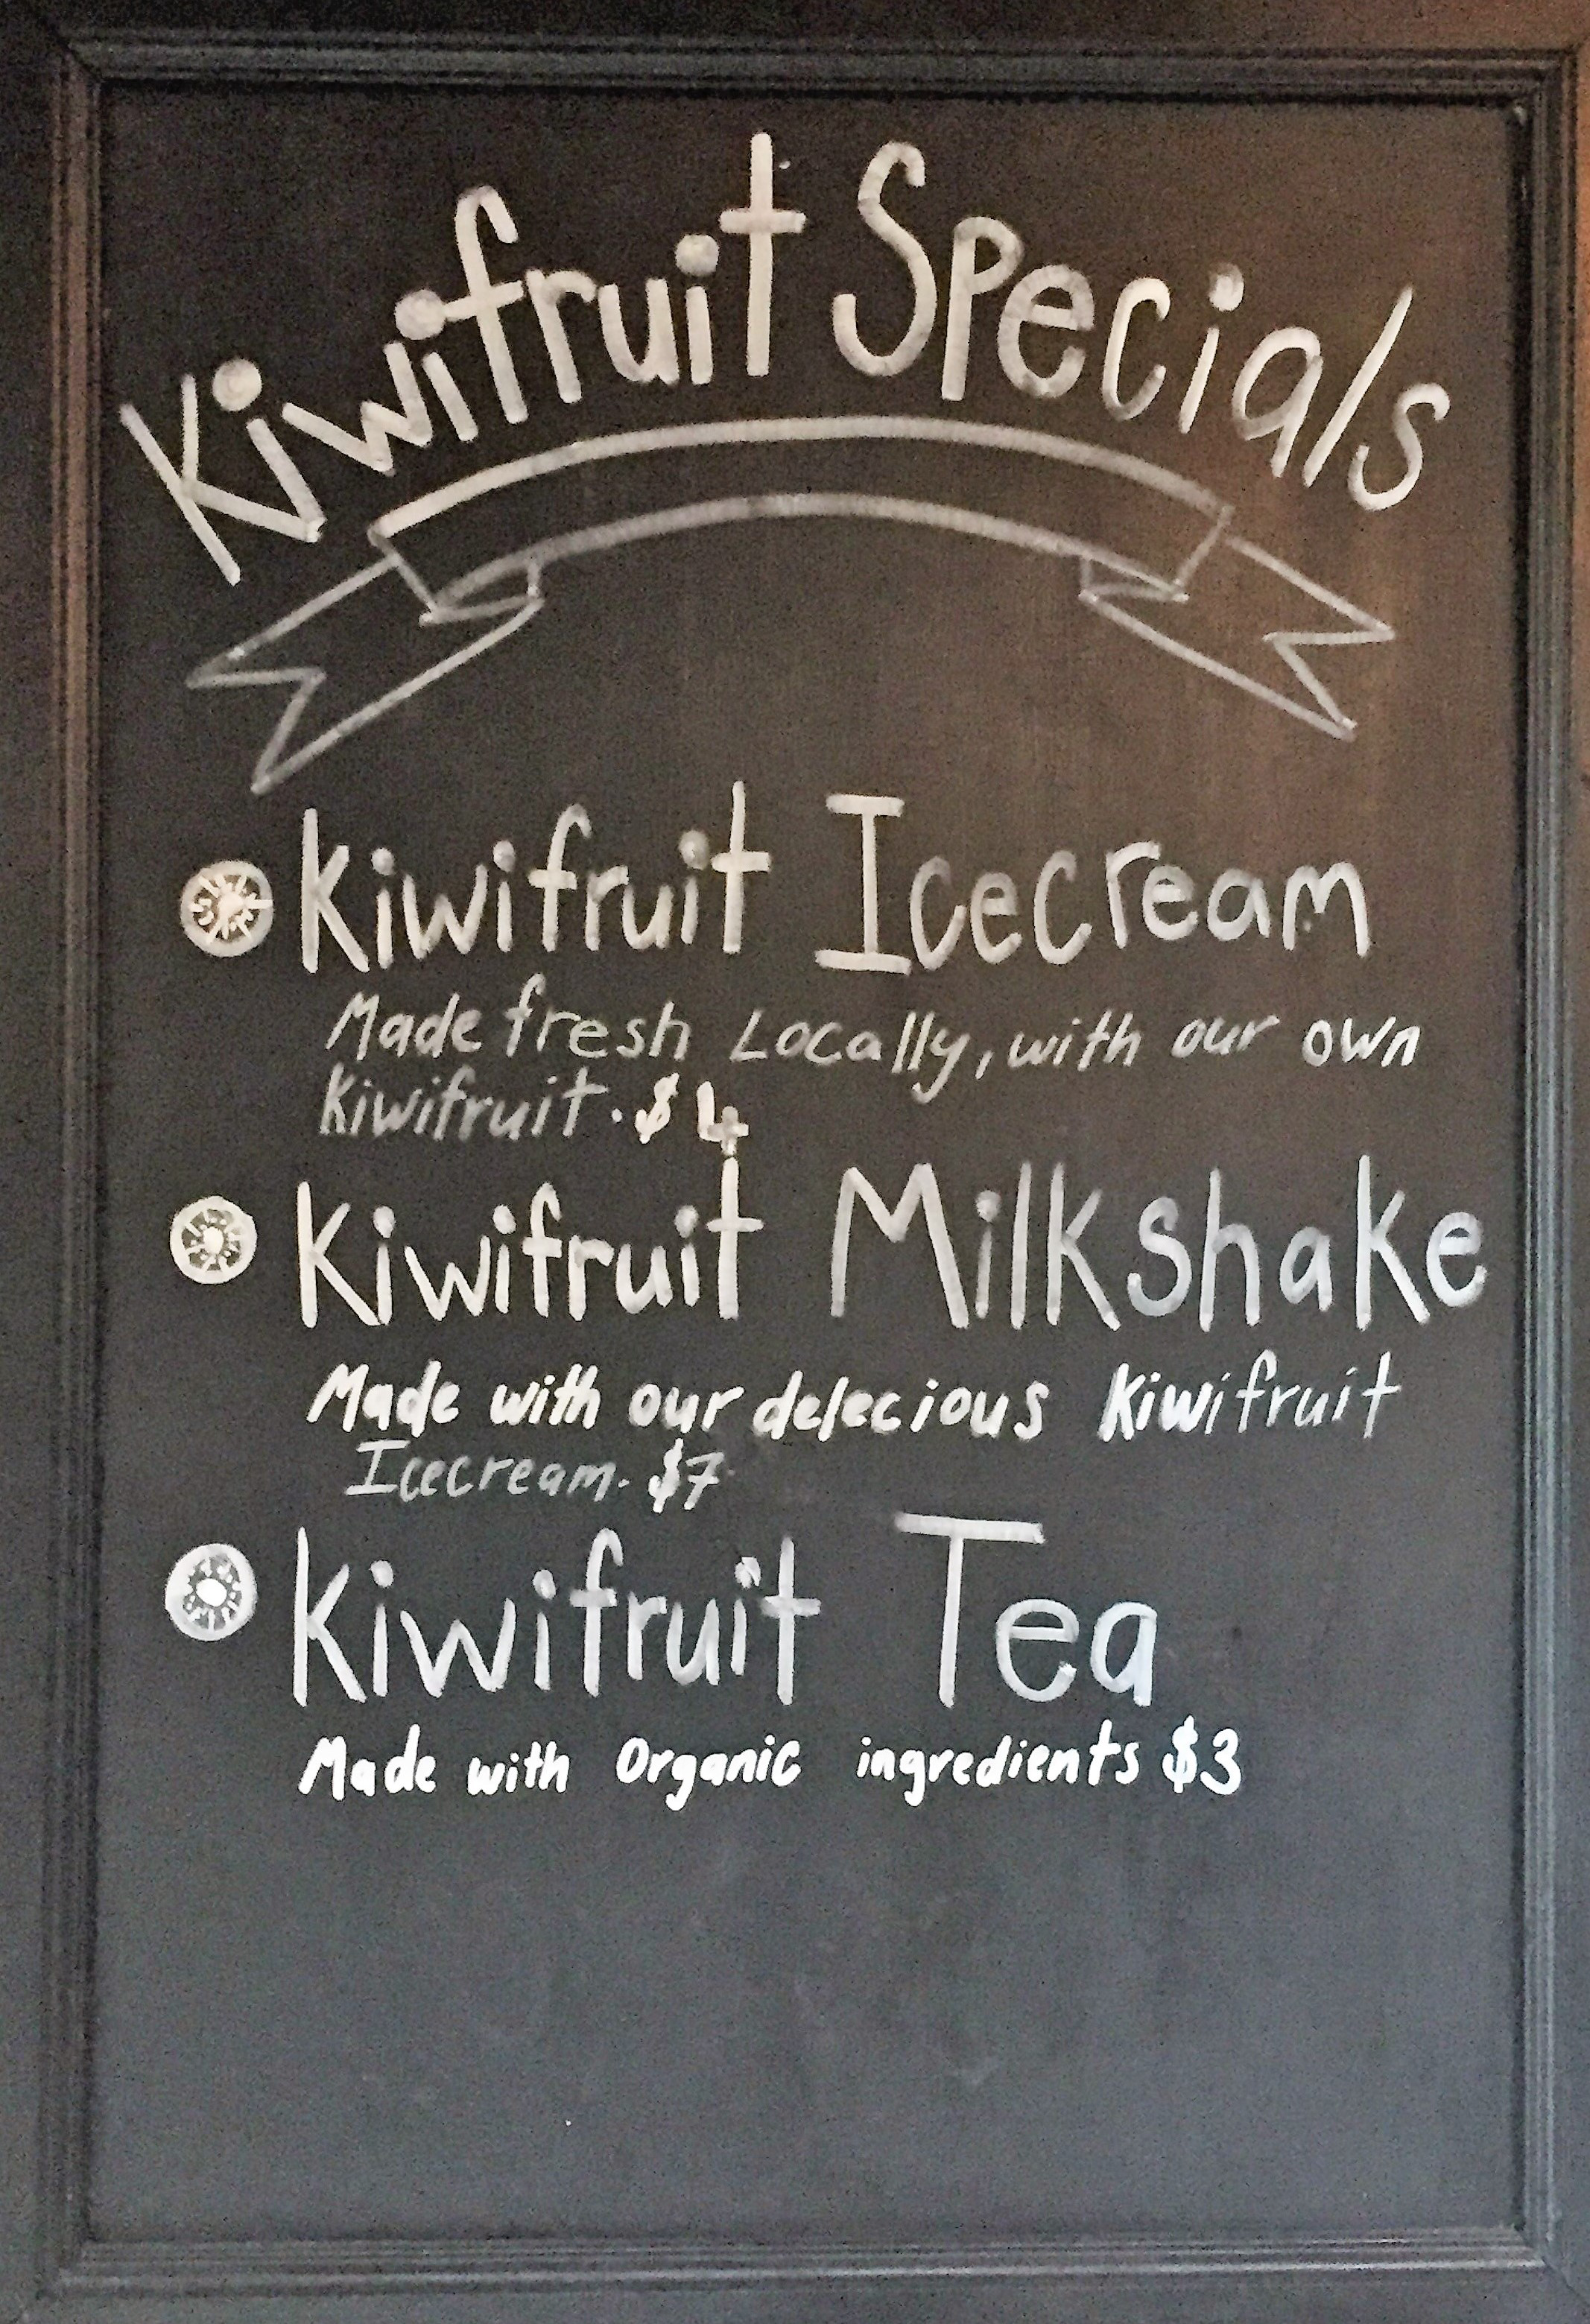 Kiwifruit Specials
Kiwifruit Icecream
Made fresh Locally, with our own
Kiwifruit. $4
Kiwifruit Milkshake
Made with our delecious Kiwifruit
Icecream. $7
Kiwifruit Tea
Made with Organic ingredients $3